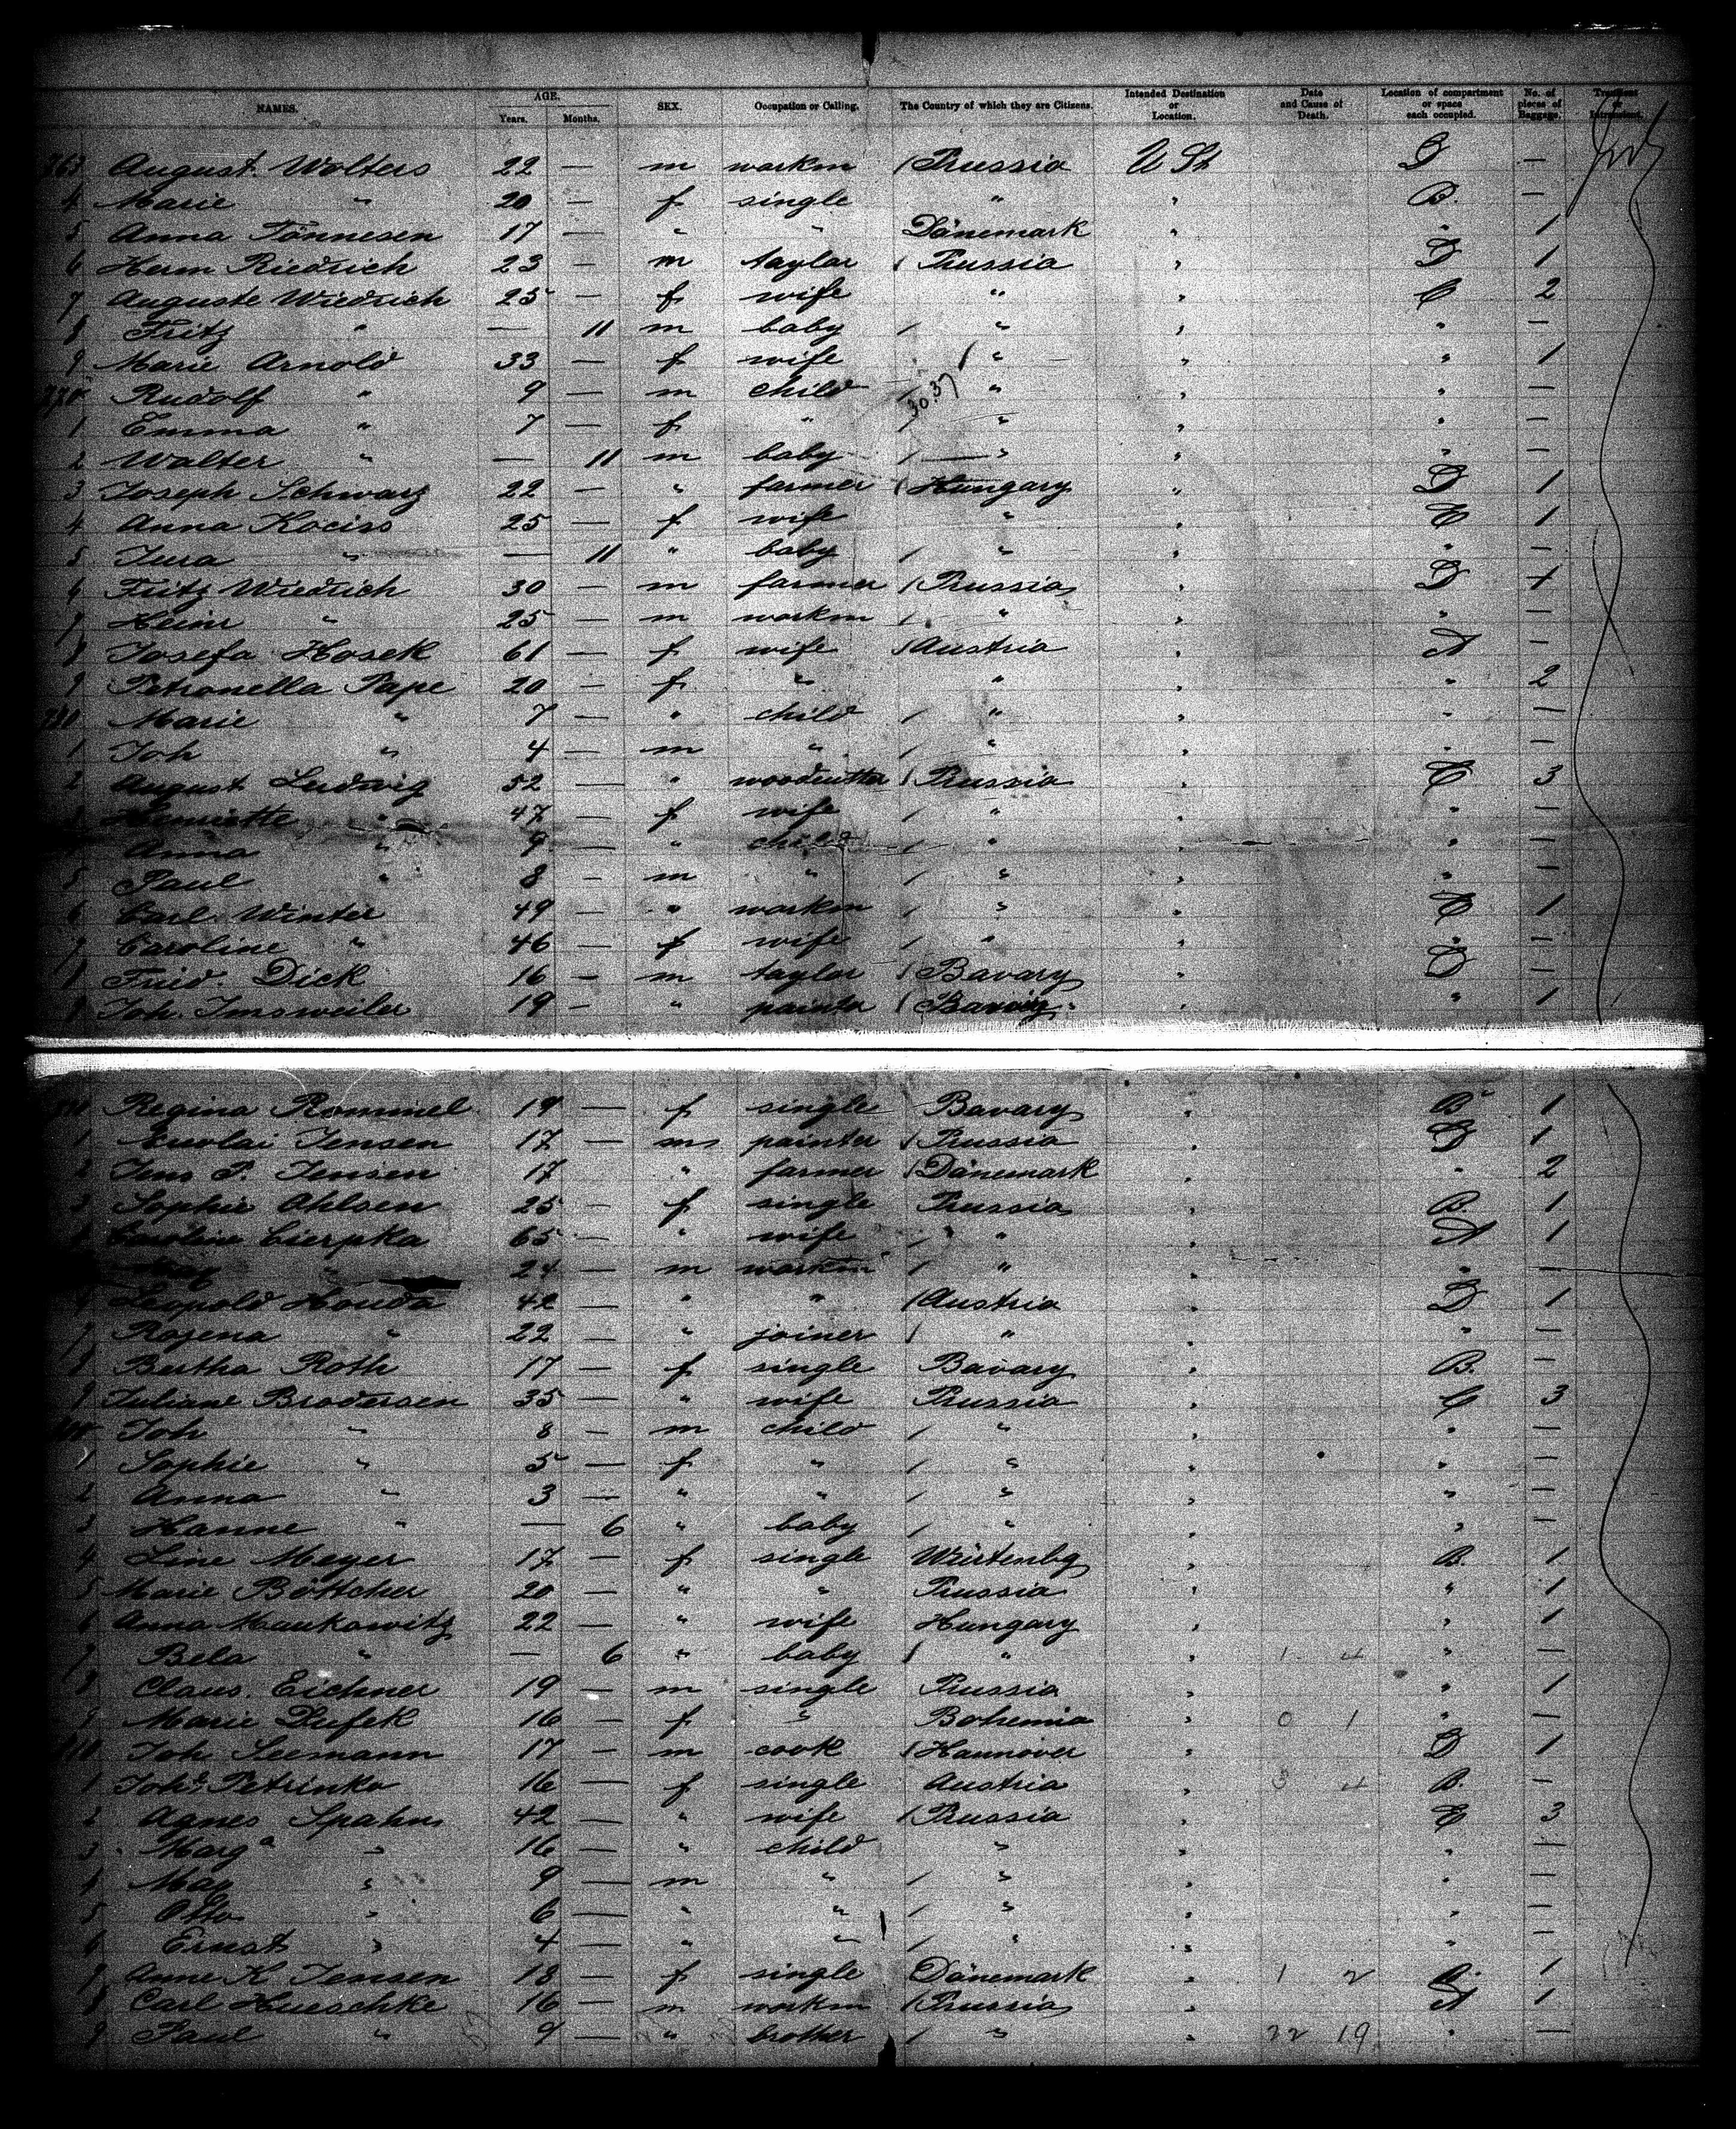 NAMES. AGE. Years. Months. SEX. Occupation or Calling. The Country of which they are Citizens. Intended Destination or Location. Date and Cause of Death. Location of compartment or space each occupied. No. of pieces of Baggage. Transient or Intransient.
763 August Wolters 22 — m workm / Prussia U St D —
4 Marie " 20 — f single " " B. —
5 Anna Tönnesen 17 — " " Dänemark " " 1
6 Herm Riedrich 23 — m taylor / Prussia " D 1
7 Auguste Wiedrich 25 — f wife " " C 2
8 Fritz " — 11 m baby / " " " —
9 Marie Arnold 33 — f wife / " " " 1
770 Rudolf " 9 — m child / " " " —
1 Emma " 7 — f " / " " " —
2 Walter " — 11 m baby / " " " —
3 Joseph Schwarz 22 — " farmer / Hungary " D 1
4 Anna Kociss 25 — f wife " " C 1
5 Jura " — 11 " baby / " " " —
6 Fritz Wiedrich 30 — m farmer / Prussia " D 1
7 Heinr " 25 — m workm / " " " —
8 Josefa Hosek 61 — f wife / Austria " A —
9 Petronella Pape 20 — f " " " " 2
780 Marie " 7 — " child / " " " —
1 Joh " 4 — m " / " " " —
2 August Ludwig 52 — " woodcutter / Prussia " C 3
3 Henriette " 47 — f wife / " " " —
Anna " 9 — " child / " " " —
5 Paul " 8 — m " / " " " —
6 Carl Winter 49 — " workm / " " C 1
7 Caroline " 46 — f wife / " " " —
8 Frid. Dick 16 — m taylor / Bavary " D —
9 Joh. Imsweiler 19 — " painter / Bavary " " 1
790 Regina Rommel 19 — f single Bavary " B 1
1 Jensen 17 — m painter / Prussia " D 1
2 Jens P. Jensen 17 " farmer / Dänemark " " 2
3 Sophie Ohlsen 25 — f single Prussia " B. 1
4 Caroline Cierpka 65 — " wife / " " A 1
" 24 — m workm / " " " —
6 Leopold Houda 42 — " " / Austria " D 1
7 Rozena " 22 — " joiner / " " " —
8 Bertha Roth 17 — f single Bavary " B. —
9 Juliane Brodersen 35 — " wife Prussia " C 3
800 Joh " 8 — m child / " " " —
1 Sophie " 5 — f " / " " " —
2 Anna " 3 — " " / " " " —
3 Hanne " — 6 " baby / " " " —
4 Line Meyer 17 — f single Würtenbg " B. 1
5 Marie Böttcher 20 — " " Prussia " " 1
6 Anna Maukowitz 22 — " wife Hungary " " 1
7 Bela " — 6 " baby / " " 1 4 " —
8 Claus. Eichner 19 — m single Prussia " " 1
9 Marie Dufek 16 — f " Bohemia " 0 1 " —
810 Joh Seemann 17 — m cook / Hannover " D 1
1 Joha. Petrinko 16 — f single Austria " 3 4 B. —
2 Agnes Spahn 42 — " wife / Prussia " C 3
3 Marga " 16 — " child " " " —
4 Max " 9 — m " / " " " —
5 Otto " 6 — " " / " " " —
6 Ernst " 4 — " " / " " " —
7 Anne K Jensen 18 — f single Dänemark " 1 2 B. 1
8 Carl Hueschke 16 — m workm / Prussia " A 1
9 Paul " 9 — " brother / " " 22 19 " —